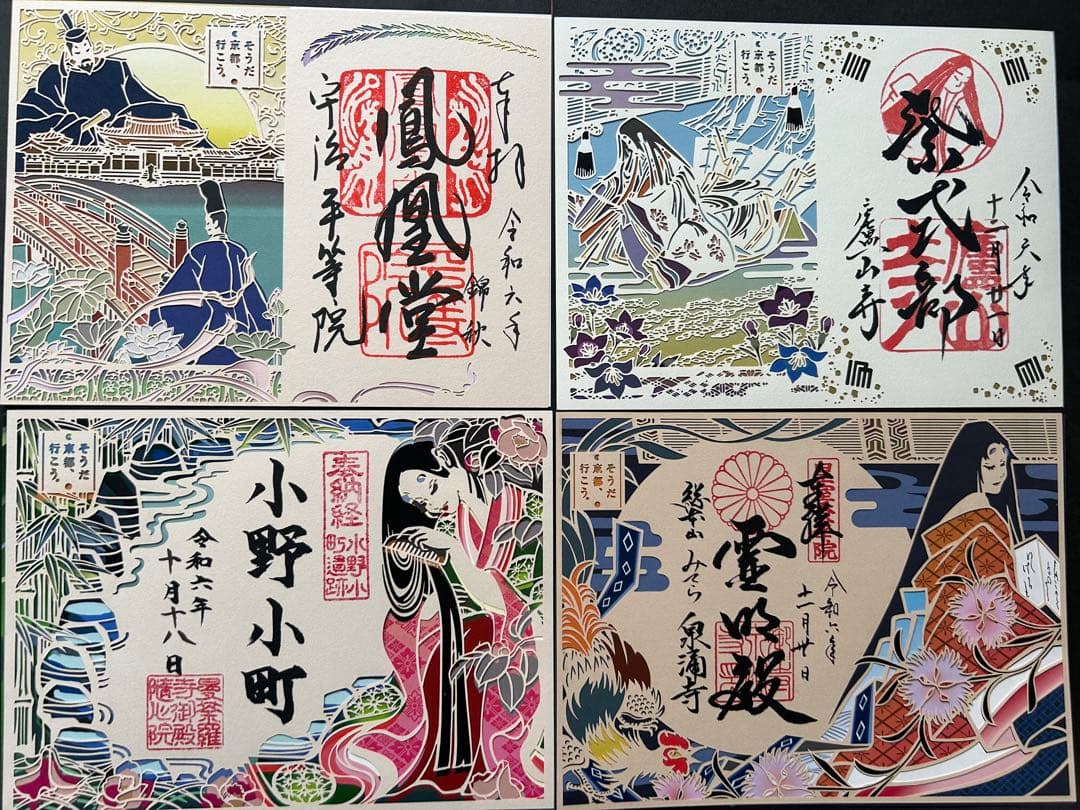 そうだ
京都、
行こう。
奉拝
令和六年
錦秋
鳳凰堂
宇治平等院
そうだ
京都、
行こう。
紫式部
令和六年
十一月廿一日
廬山寺
そうだ
京都、
行こう。
奉納経
小野小
町遺跡
小野小町
令和六年
十月十八日
曼荼羅
寺御殿
隨心院
そうだ
京都、
行こう。
奉拝
令和六年
十一月廿日
霊明殿
総本山 みてら 泉涌寺